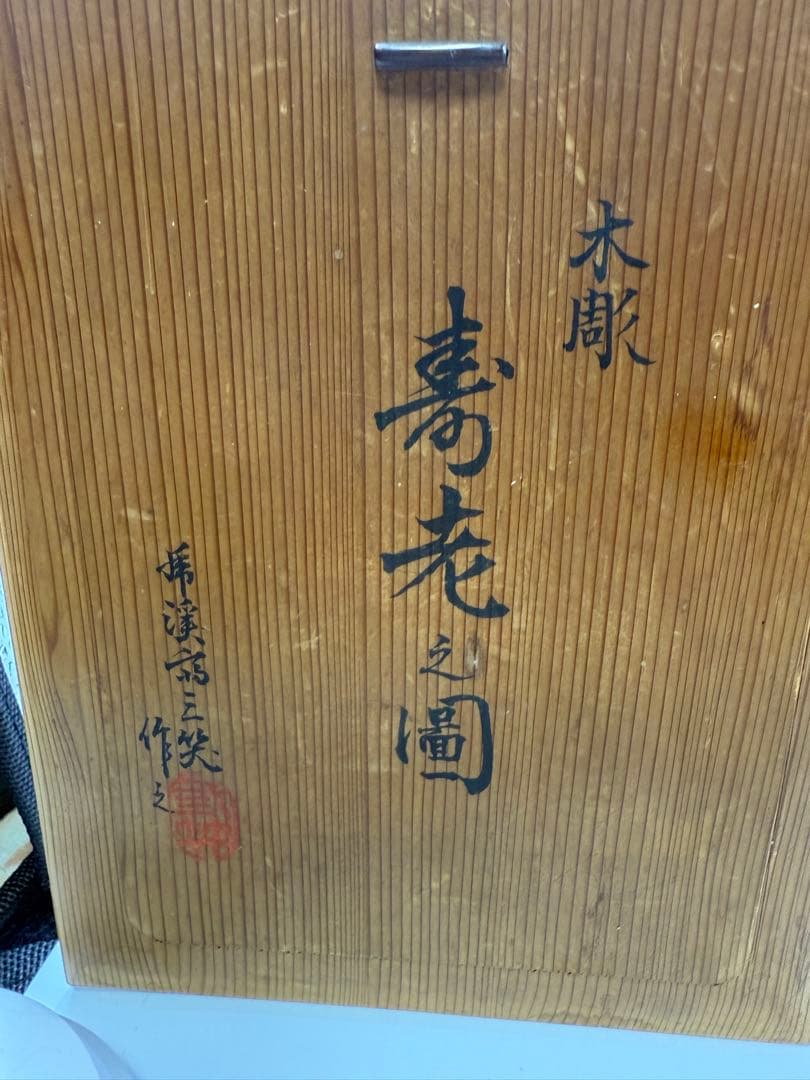 木彫
寿老之圖
乕溪斎三笑
作之